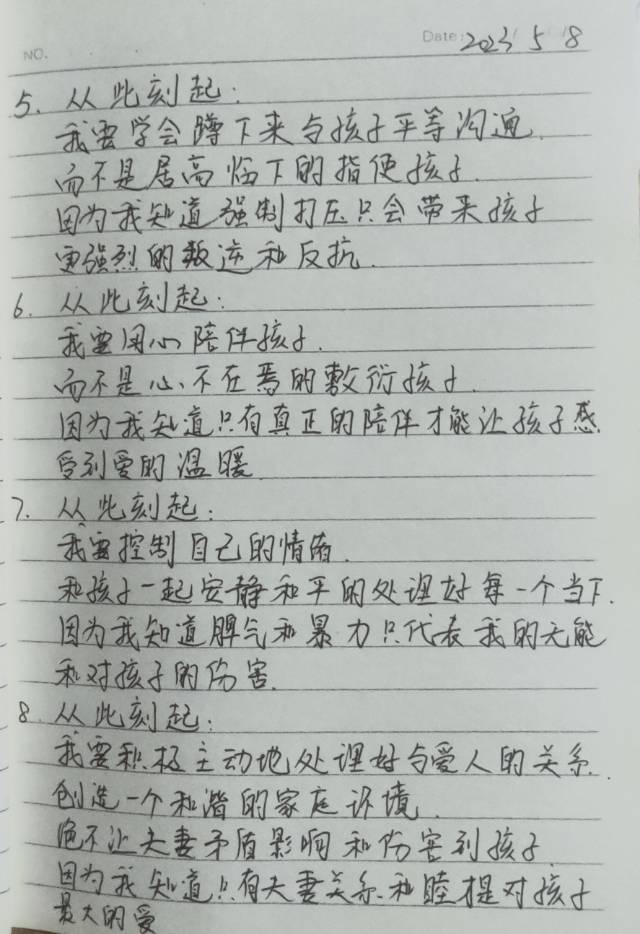 NO.
Date: 2023 5 8
5. 从此刻起:
我要学会蹲下来与孩子平等沟通.
而不是居高临下的指使孩子.
因为我知道强制打压只会带来孩子
更强烈的叛逆和反抗.
6. 从此刻起:
我要用心陪伴孩子.
而不是心不在焉的敷衍孩子.
因为我知道只有真正的陪伴才能让孩子感
受到爱的温暖
7. 从此刻起:
我要控制自己的情绪.
和孩子一起安静和平的处理好每一个当下.
因为我知道脾气和暴力只代表我的无能
和对孩子的伤害.
8. 从此刻起:
我要积极主动地处理好与爱人的关系.
创造一个和谐的家庭环境.
绝不让夫妻矛盾影响和伤害到孩子
因为我知道只有夫妻关系和睦才是对孩子
最大的爱